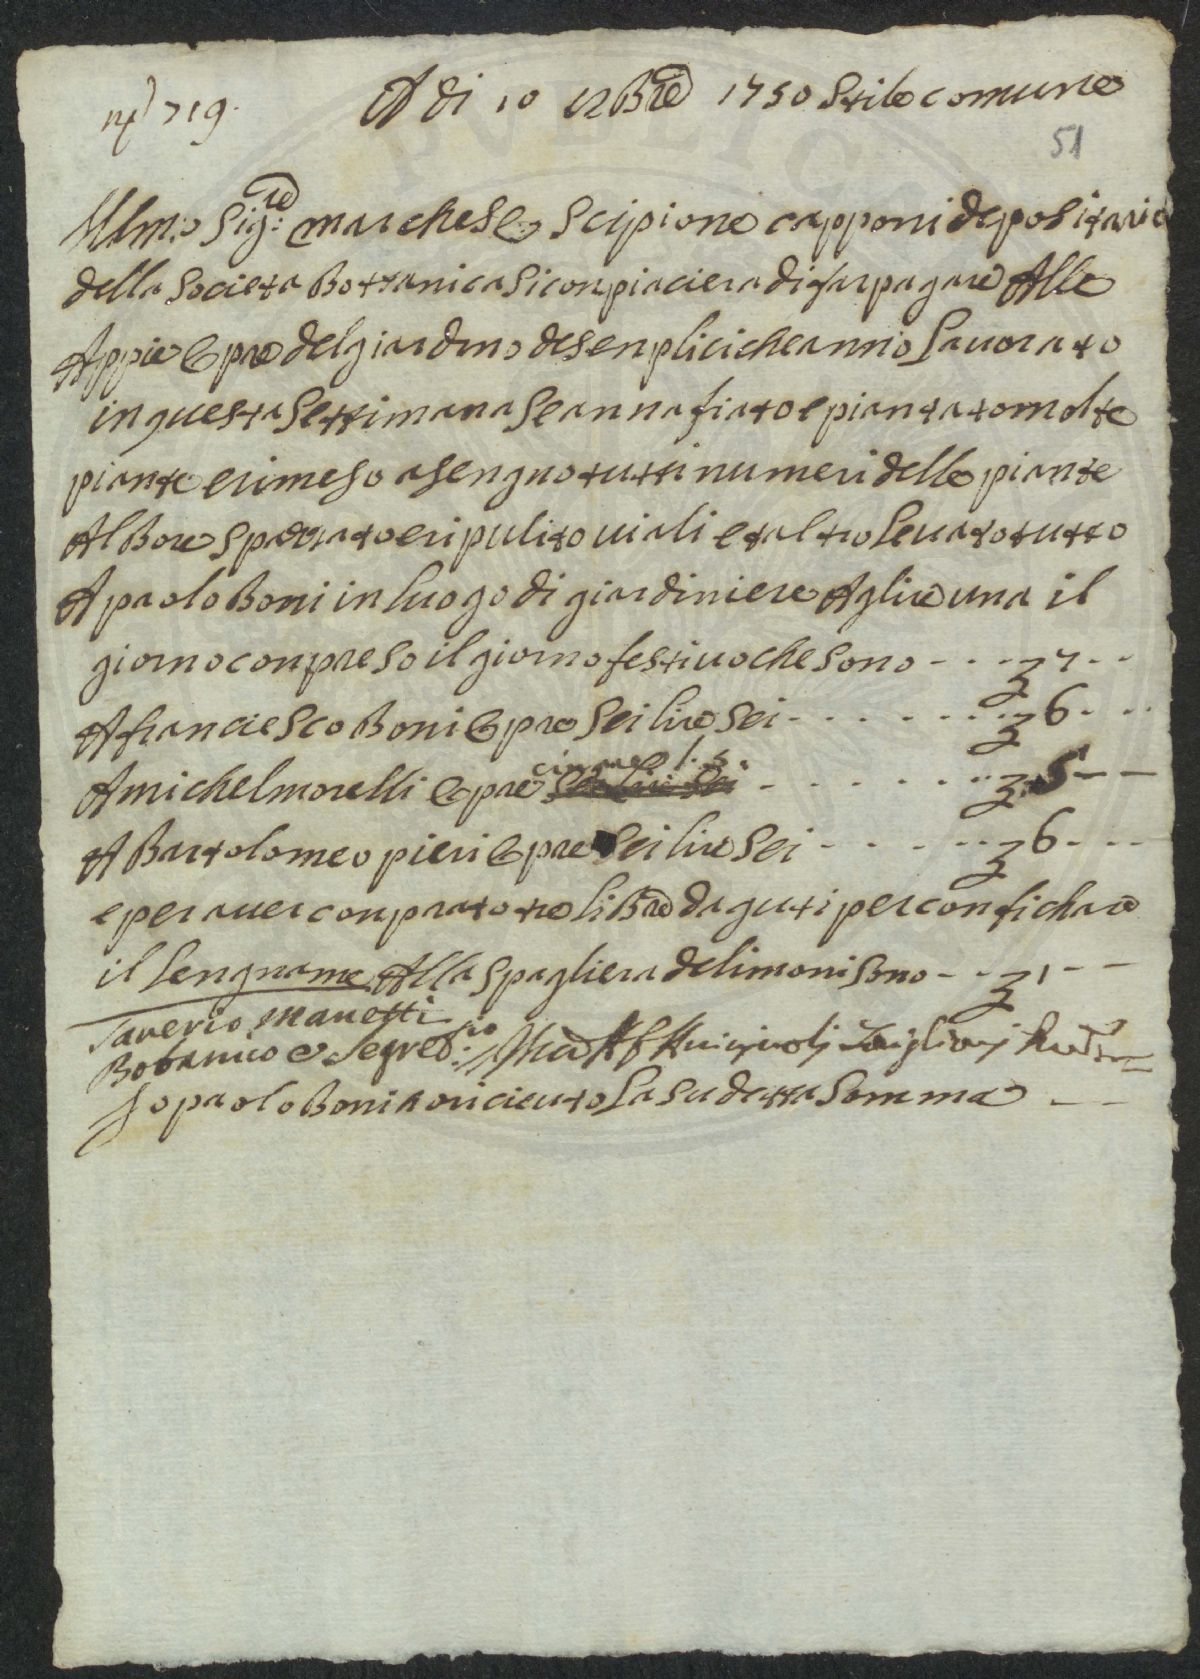 nº 719.
A di 10 12Bre 1750 Stile comune
51
Illmo: Sigre: marchese Scipione capponi depositario
della Societa Bottanica si conpiaciera di far pagare Alle
Appie Opre del giardino de senplici che anno Lauorato
in questa Settimana Se annafiato e piantato molte
piante e rimeso a sengno tutti numeri delle piante
Al Bore spazzato e ripulito uiali et altro Leuato tutto
A paolo Boni in luogo di giardiniere A glire una il
giorno conpreso il giorno festiuo che sono - - - 7 - -
A franciesco Boni Opre Sei lire Sei - - - - - - - 6 - - -
A michel morelli Opre cinque l. 5. - - - - - - - 5 - -
A Bartolomeo pieri Opre Sei lire Sei - - - - - - 6 - - -
e per auer conprato tre liBre d aguti per conficchare
il Lengname Alla Spagliera de limoni sono - - 1 - -
Saverio Manetti
Botanico e Segretrio:
Io paolo Boni o riceuto La Su detta Somma - -